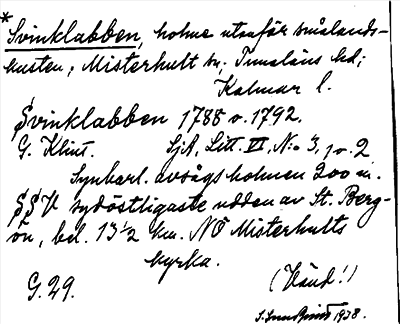 * Svinklabben, holme utanför smålands-
kusten; Misterhult sn, Tunaläns hd;
Kalmar l.
Svinklabben 1788 o. 1792.
G. Klint. Sjk. Litt. VI, N:o 3, 1 o. 2
Synbarl. avsågs holmen 300 m.
SSV sydöstligaste udden av St. Berg-
ön, bel. 13½ km. NÖ Misterhults
kyrka.
G. 29. (Vänd!)
1938.